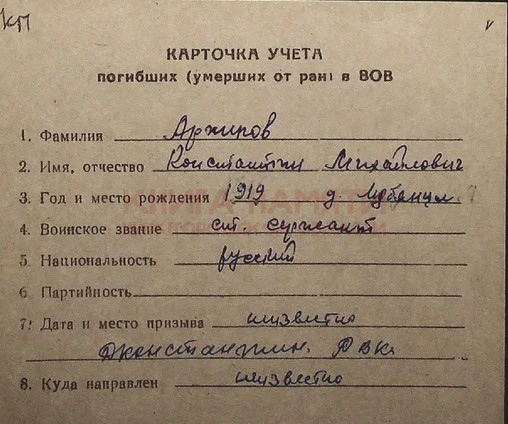 КП
КАРТОЧКА УЧЕТА
погибших (умерших от ран) в ВОВ
1. Фамилия Архипов
2. Имя, отчество Константин Михайлович
3. Год и место рождения 1919 д
4. Воинское звание ст. сержант
5. Национальность русский
6 Партийность
7. Дата и место призыва неизвестно
РВК
8. Куда направлен неизвестно